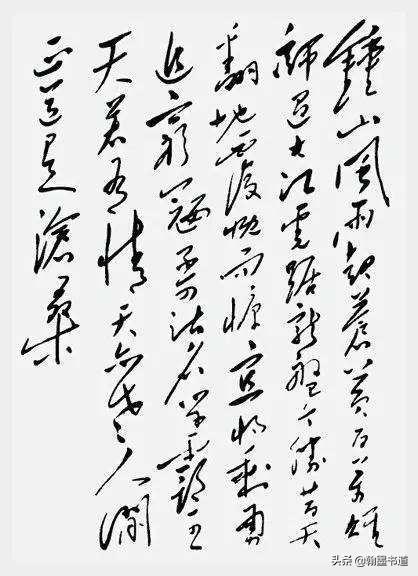 鍾山風雨起蒼黄百万雄
師過大江虎踞龍盤今勝昔天
翻地覆慨而慷宜将剩勇
追窮寇不可沽名学霸王
天若有情天亦老人間
正道是滄桑
头条 @翰墨书道